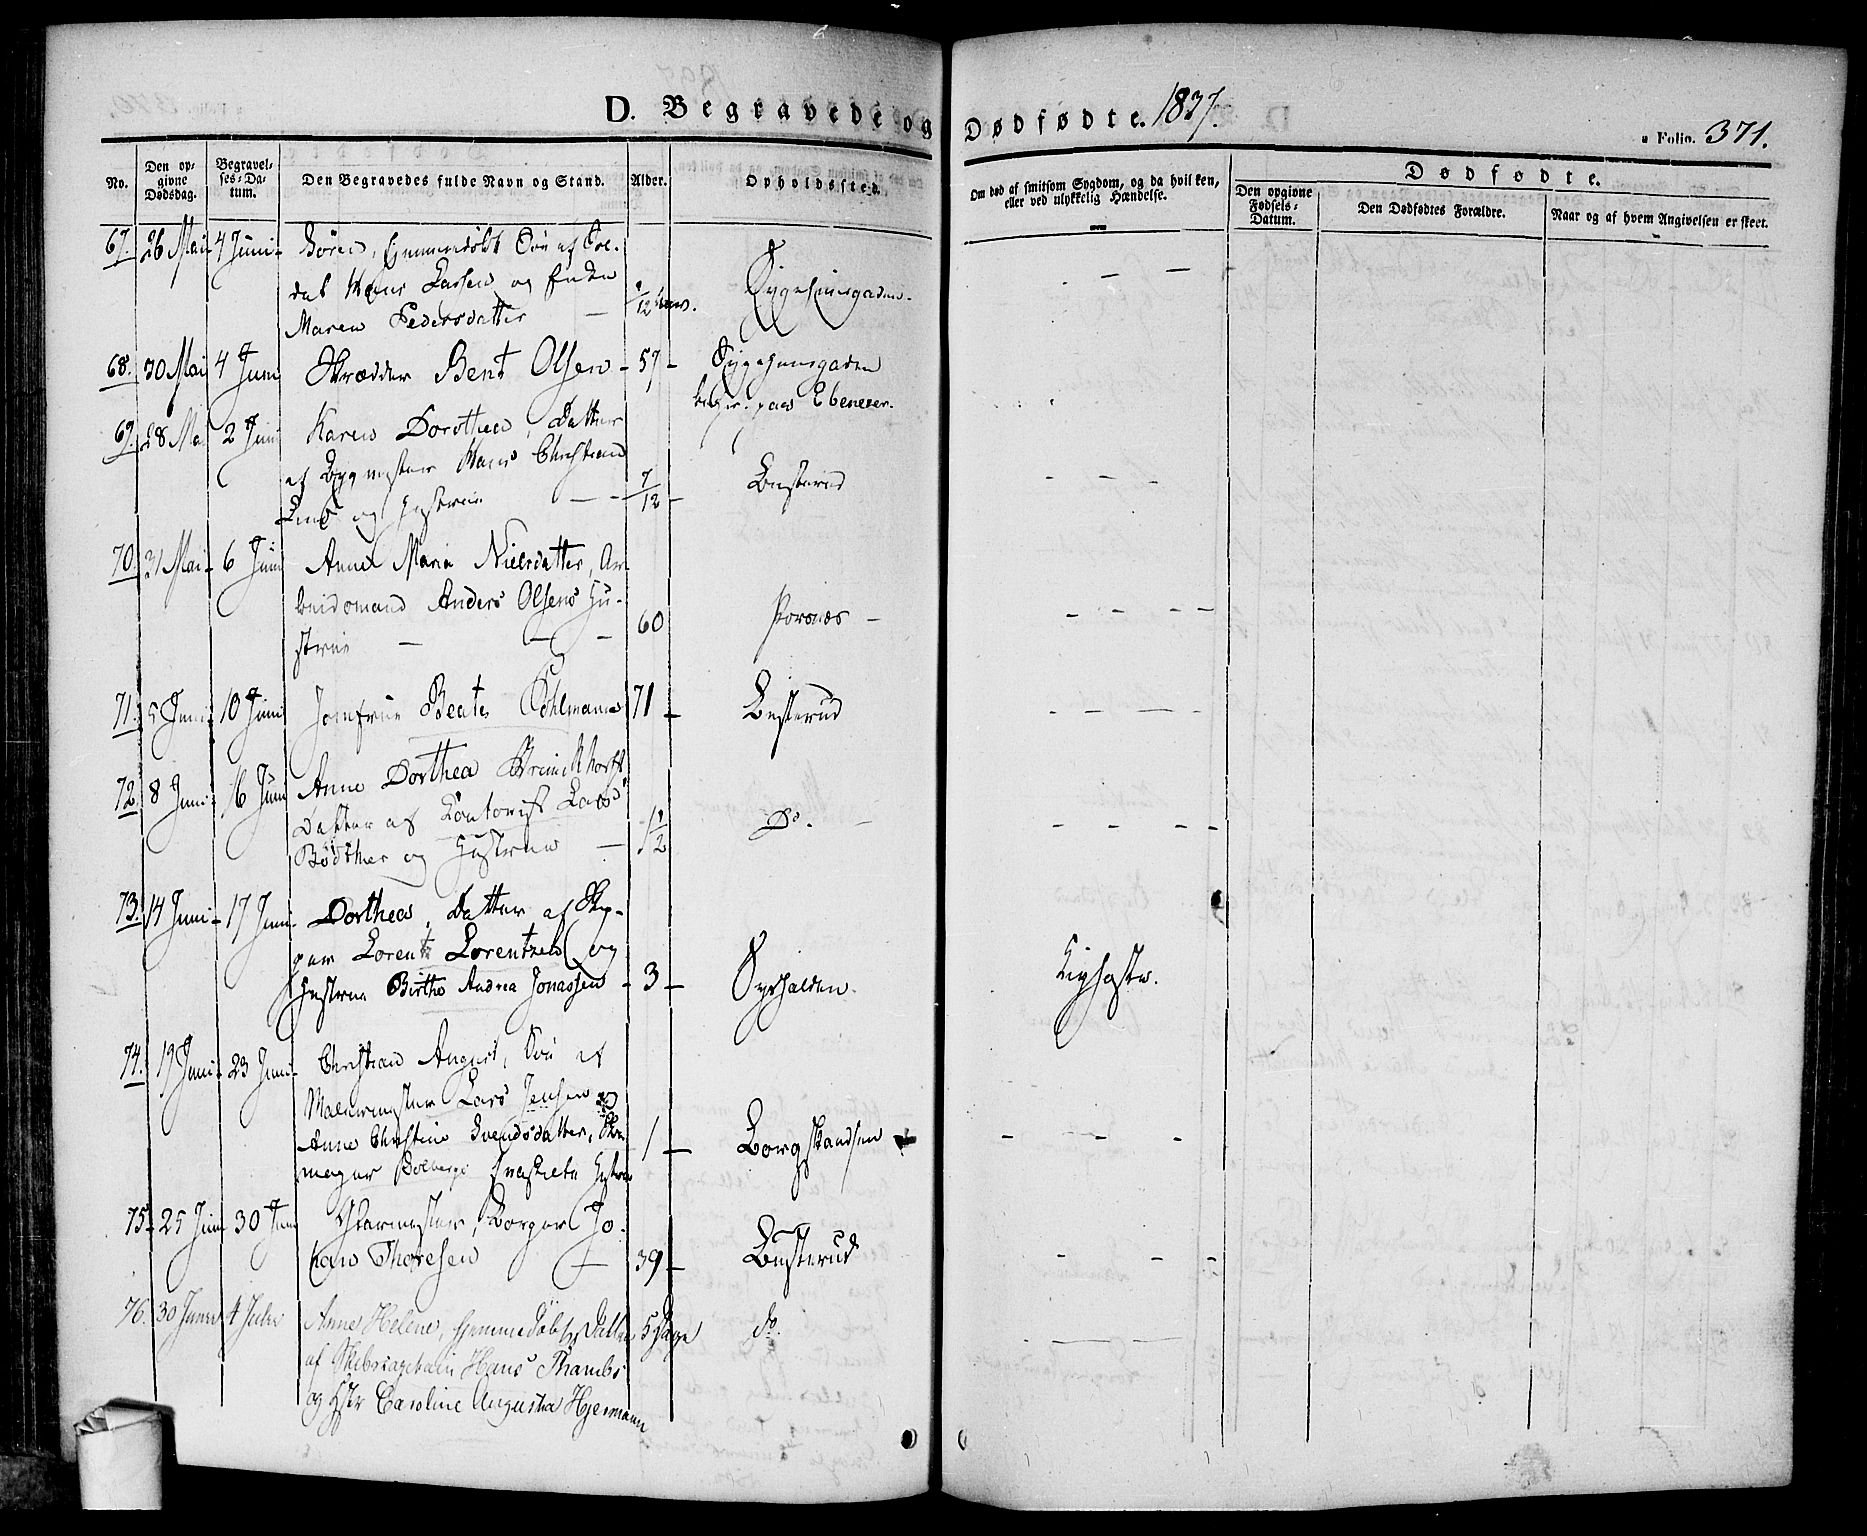 D. Begravede og Dødfødte. 1837.
Folio. 371.
No.
Den opgivne Dødsdag.
Begravelses-Datum.
Den Begravedes fulde Navn og Stand.
Alder.
Opholdssted.
Om død af smitsom Sygdom, og da hvilken,
eller ved ulykkelig Hændelse.
Dødfødte.
Den opgivne Fødsels-Datum.
Den Dødfødtes Forældre.
Naar og af hvem Angivelsen er skeet.
67. 26 Mai 4 Juni Sören, hjemmedöbt Sön af
Hans Larsen og Enke
Maren Pedersdatter
68. 30 Mai 4 Juni Skrædder Bent Olsen 57
Ebenezer.
69. 28 Mai 2 Juni Karen Dorothea, Datter
af Bygmester Hans Christian
Lund og Hustrue 7/12 Busterud
70. 31 Mai 6 Juni Anne Maria Nielsdatter, Ar-
beidsmand Anders Olsens Hu-
strue 60 Torsnæs
71. 5 Juni 10 Juni Jomfrue Beate 71 Busterud
72. 8 Juni 16 Juni Anne Dorthea
Datter af Contorist Lars
Bödtker og Hustrue 1 1/2 Do.
73. 14 Juni 17 Juni Dorthea, Datter af Skip-
per Lorentz Lorentzen og
Hustrue Birthe Andrea Jonassen 3 Sydhalden. Kighoste.
74. 19 Juni 23 Juni Christian August, Sön af
Malermester Lars Jensen og
Anne Christine Svendsdatter, Sko-
mager Hustru 1 Borgskandsen
75. 25 Juni 30 Juni Glarmester, Borger Jo-
han Thoresen 39 Busterud
76. 30 Juni 4 Julii Anne Helene, hjemmedöbt Datter 5 Dage do.
af Skibscaptain Hans Thambs
og Hstr Caroline Augusta Hjermann